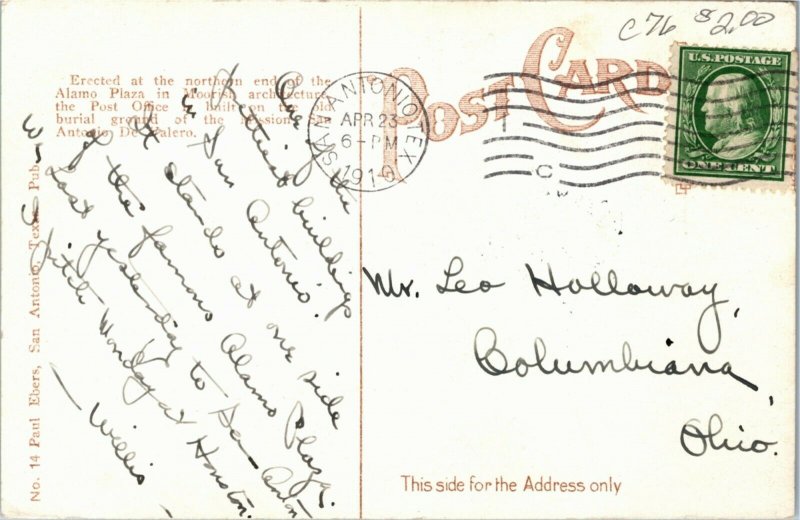 C76 $2.00
POST CARD
U.S. POSTAGE
ONE CENT
SAN ANTONIO, TEX.
APR 23
6-PM
1910
C
Erected at the northern end of the
Alamo Plaza in Moorish architecture,
the Post Office is built on the old
burial ground of the Mission San
Antonio De Valero.
One of the
prettiest buildings
in San Antonio.
It stands at one side
of the famous Alamo Plaza.
Last yesterday to San Anton
Monday at Houston.
— Willis —
Mr. Leo Holloway,
Columbiana,
Ohio.
This side for the Address only
No. 14 Paul Ebers, San Antonio, Texas, Pub.